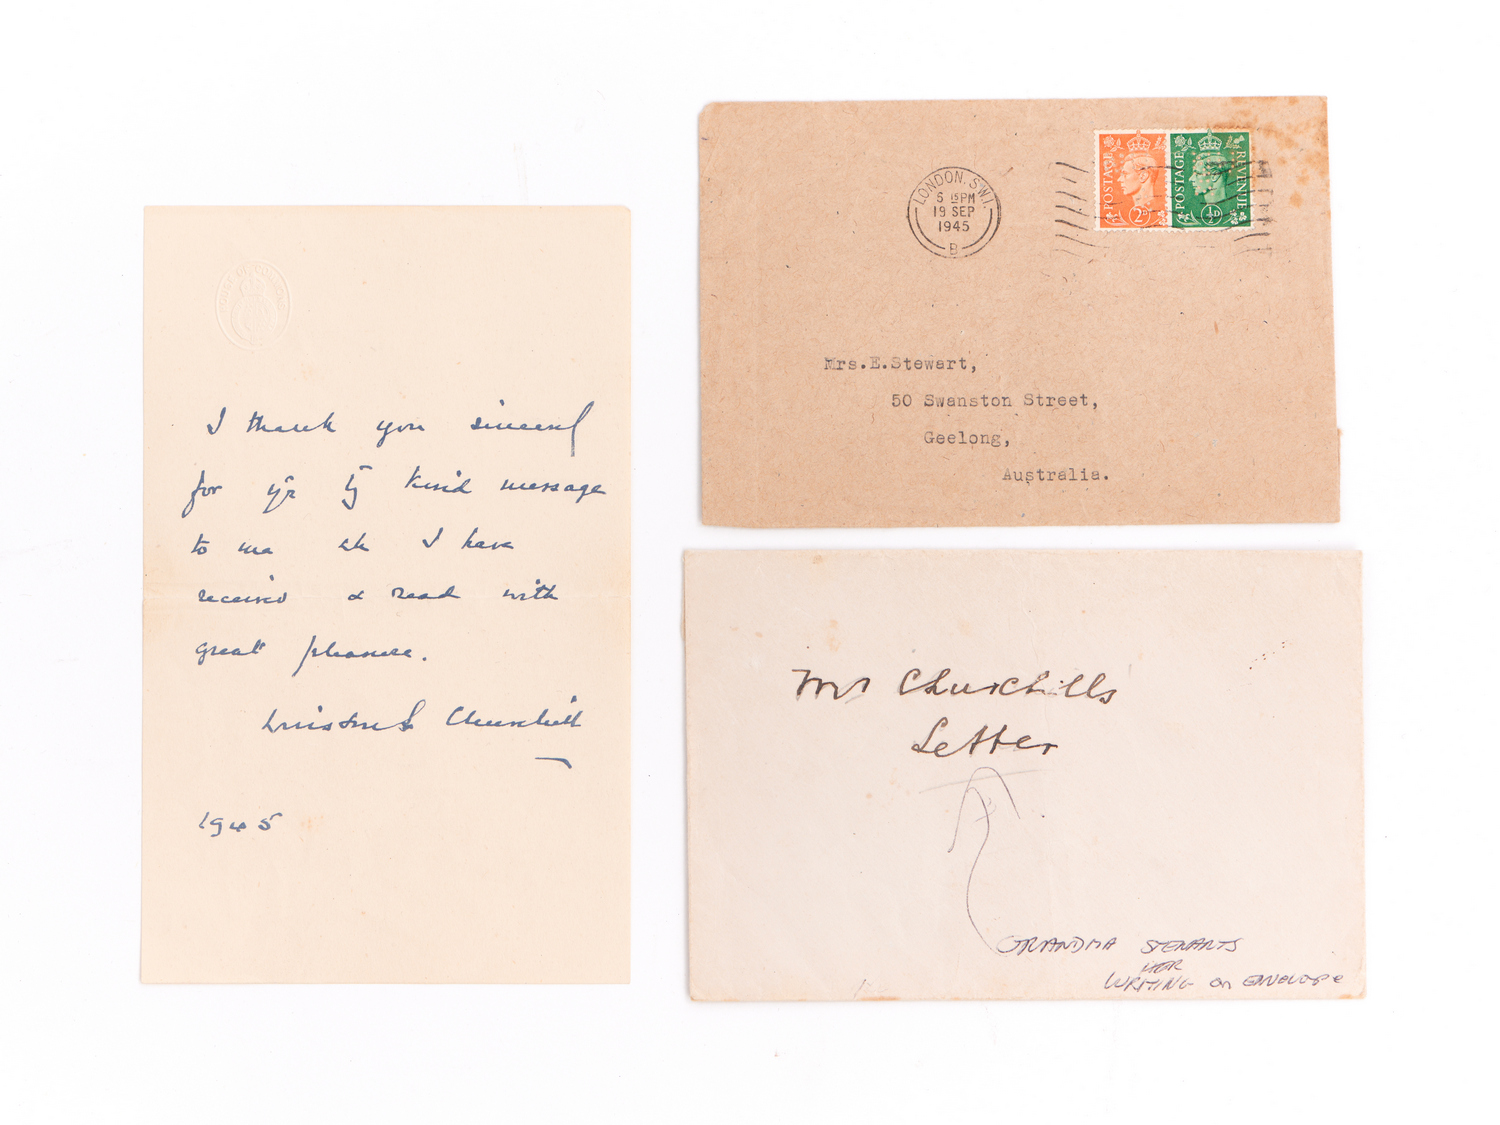 HOUSE OF COMMONS
I thank you sincerely
for yr vy kind message
to me wh I have
received & read with
great pleasure.
Winston S. Churchill
1945
LONDON. S.W.1.
5 15 PM
19 SEP
1945
B
POSTAGE
2D
POSTAGE REVENUE
½D
Mrs.E.Stewart,
50 Swanston Street,
Geelong,
Australia.
Mr Churchills
Letter
GRANDMA STEWARTS
HER
WRITING on ENVELOPE